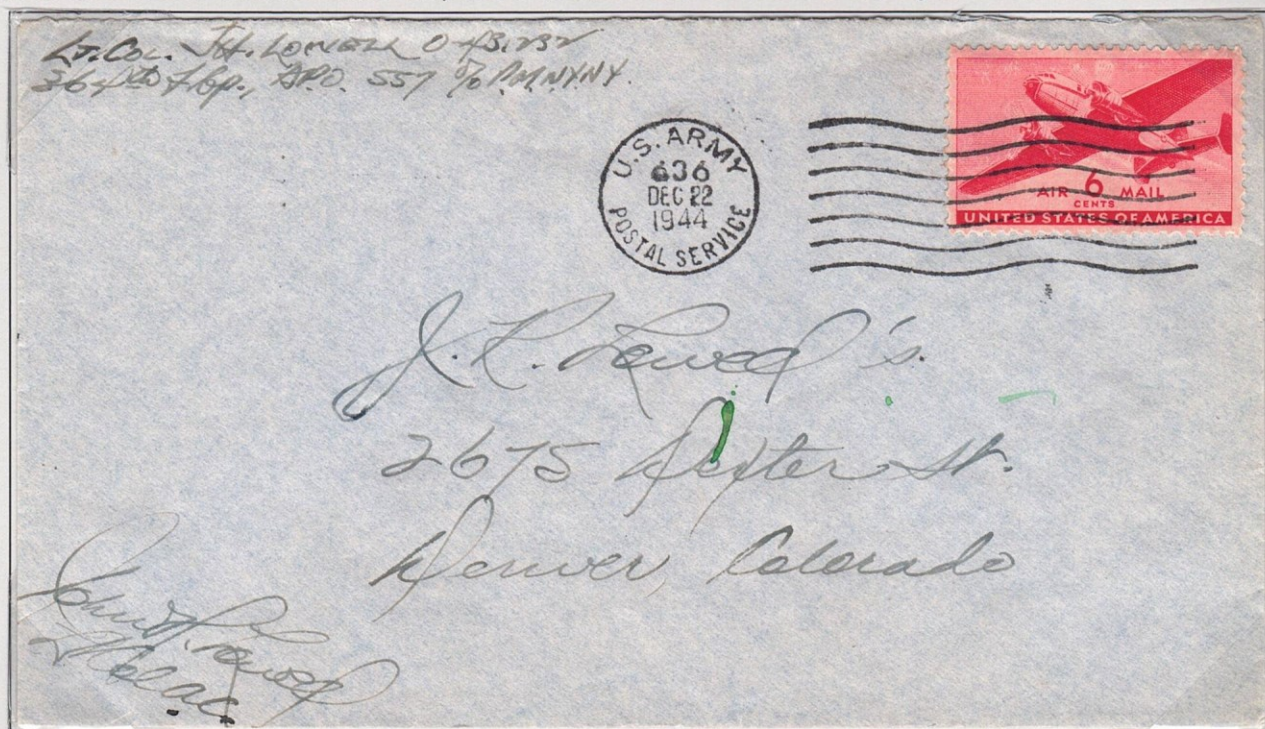 Lt. Col. J.H. Lowell O-43,232
364th F. Gp., A.P.O. 557 c/o P.M. N.Y. N.Y.
U.S. ARMY
636
DEC 22
1944
POSTAL SERVICE
AIR 6 MAIL
CENTS
UNITED STATES OF AMERICA
J. R. Lowell's
2675 Dexter St.
Denver, Colorado
John H. Lowell
Lt Col a.c.